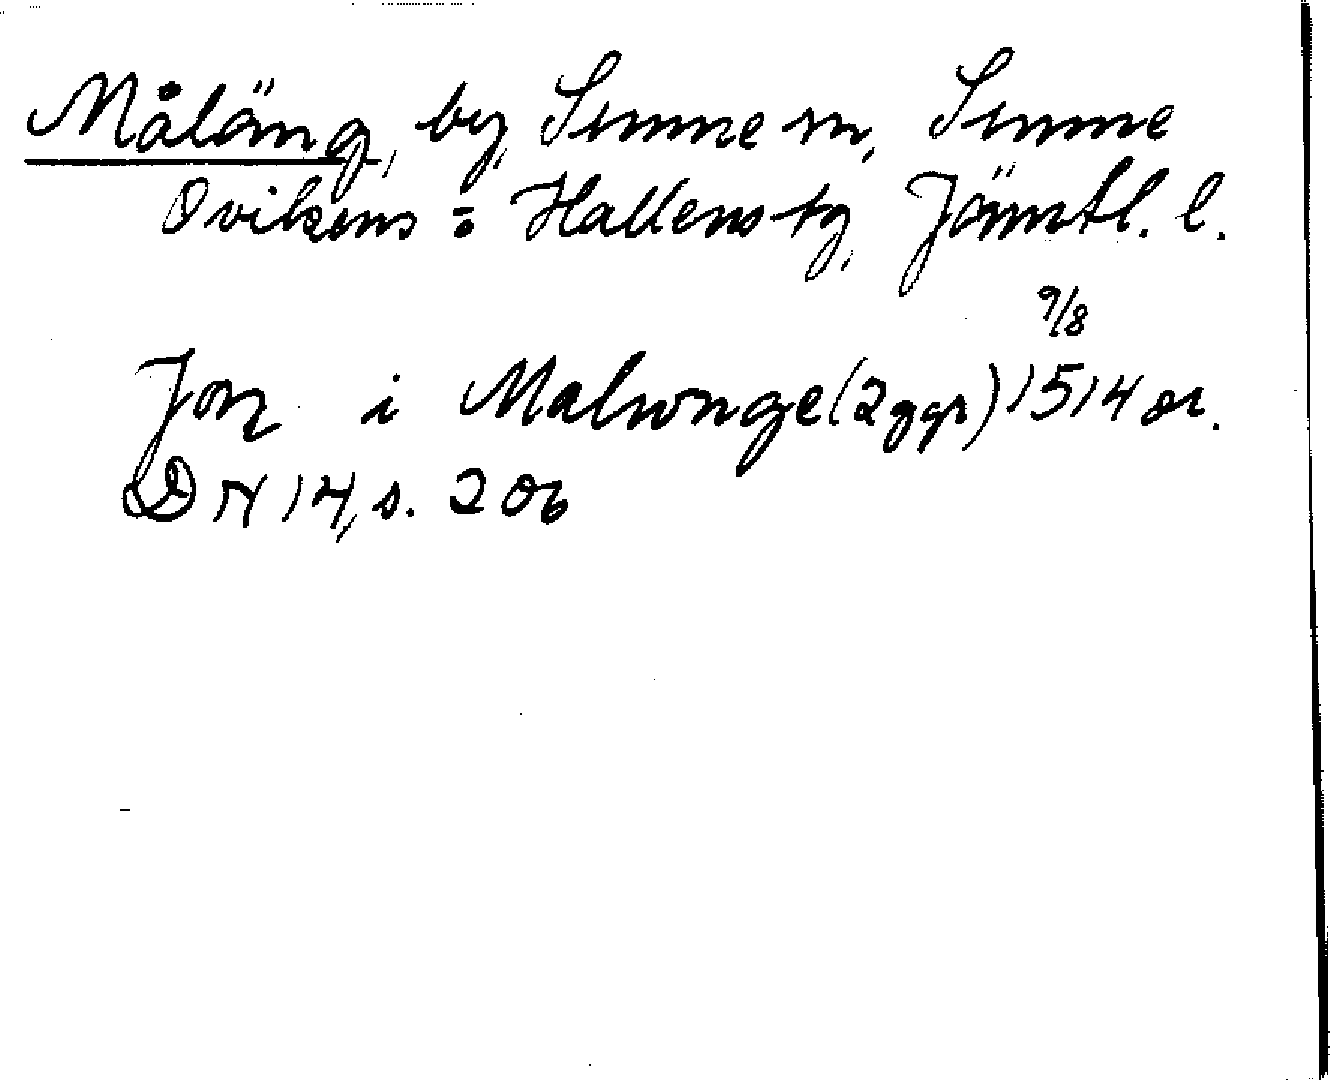 Måläng, by, Sunne sn, Sunne
Ovikens = Hallens tg, Jämtl. l.
9/8
Jon i Malwnge (2 ggr) 1514 or.
DN 14, s. 206